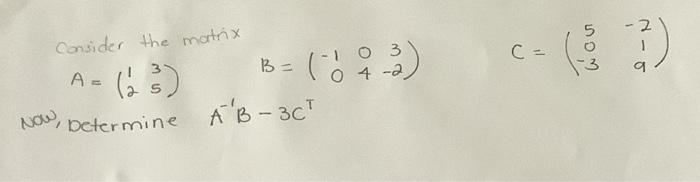 Consider the matrix
A = (1 3
2 5)
B = (-1 0 3
0 4 -2)
C = (5 -2
0 1
-3 9)
Now, Determine A⁻¹B - 3Cᵀ